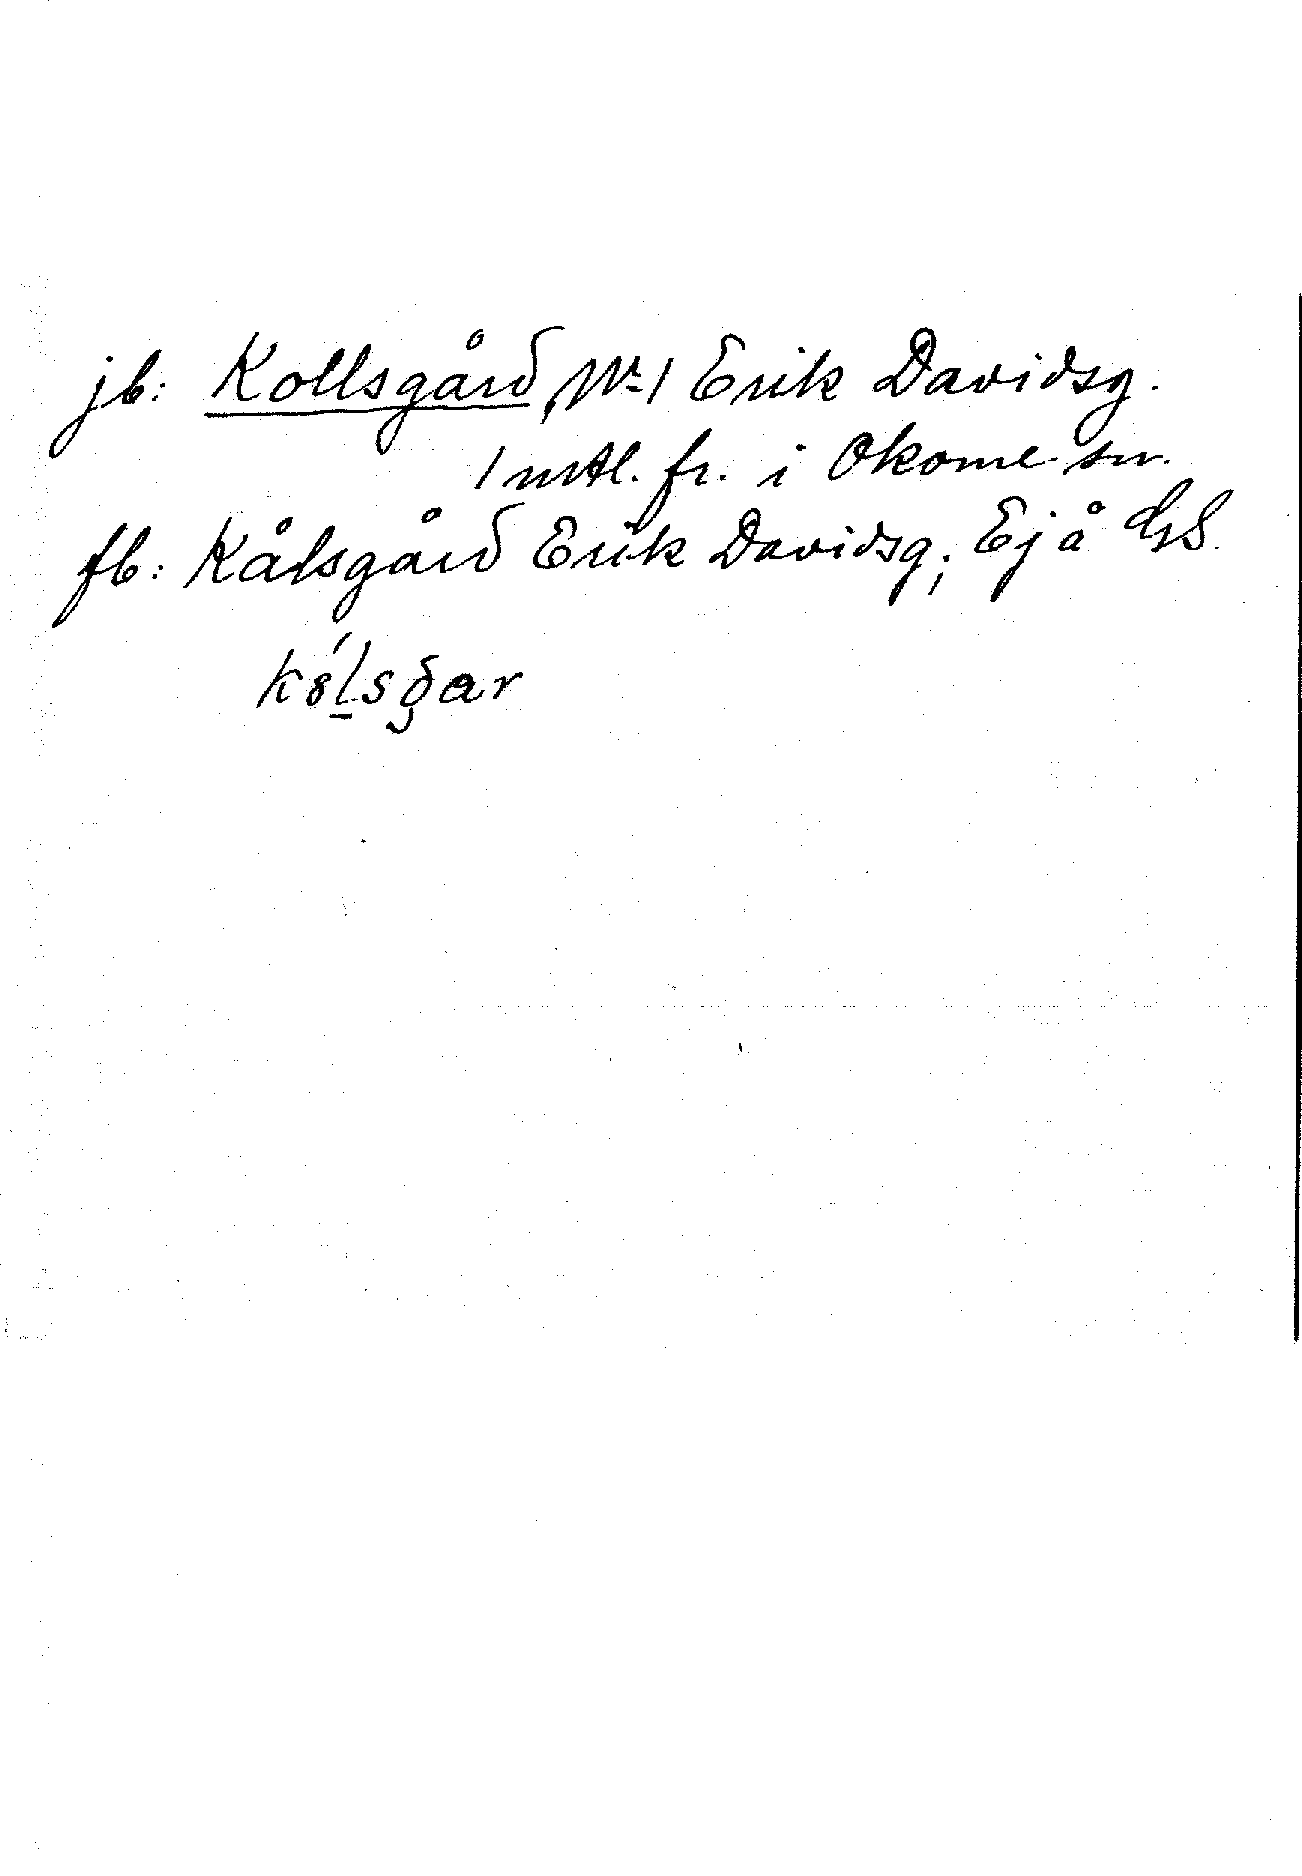 jb: Kollsgård, Nr 1 Erik Davidsg.
1 mtl. fr. i Okome sn.
fb: Kålsgård Erik Davidsg; Ej å GS.